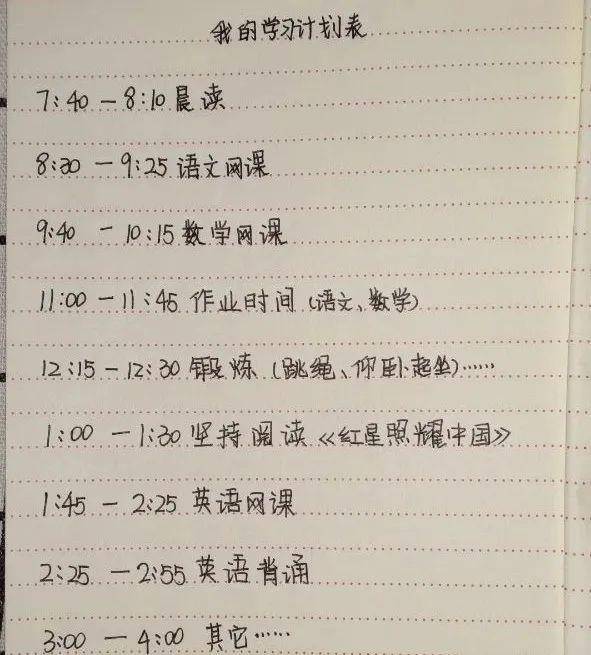 我的学习计划表
7:40 — 8:10 晨读
8:30 — 9:25 语文网课
9:40 — 10:15 数学网课
11:00 — 11:45 作业时间 (语文、数学)
12:15 — 12:30 锻炼 (跳绳、仰卧起坐)……
1:00 — 1:30 坚持阅读 《红星照耀中国》
1:45 — 2:25 英语网课
2:25 — 2:55 英语背诵
3:00 — 4:00 其它……